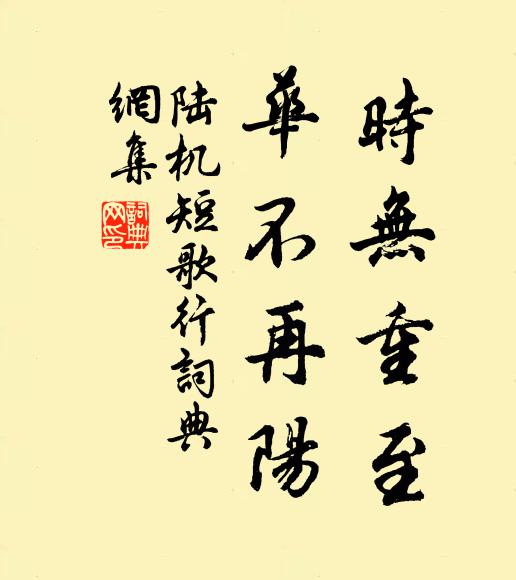 時無重至
華不再陽
陆机短歌行詞典
網集
詞典网印